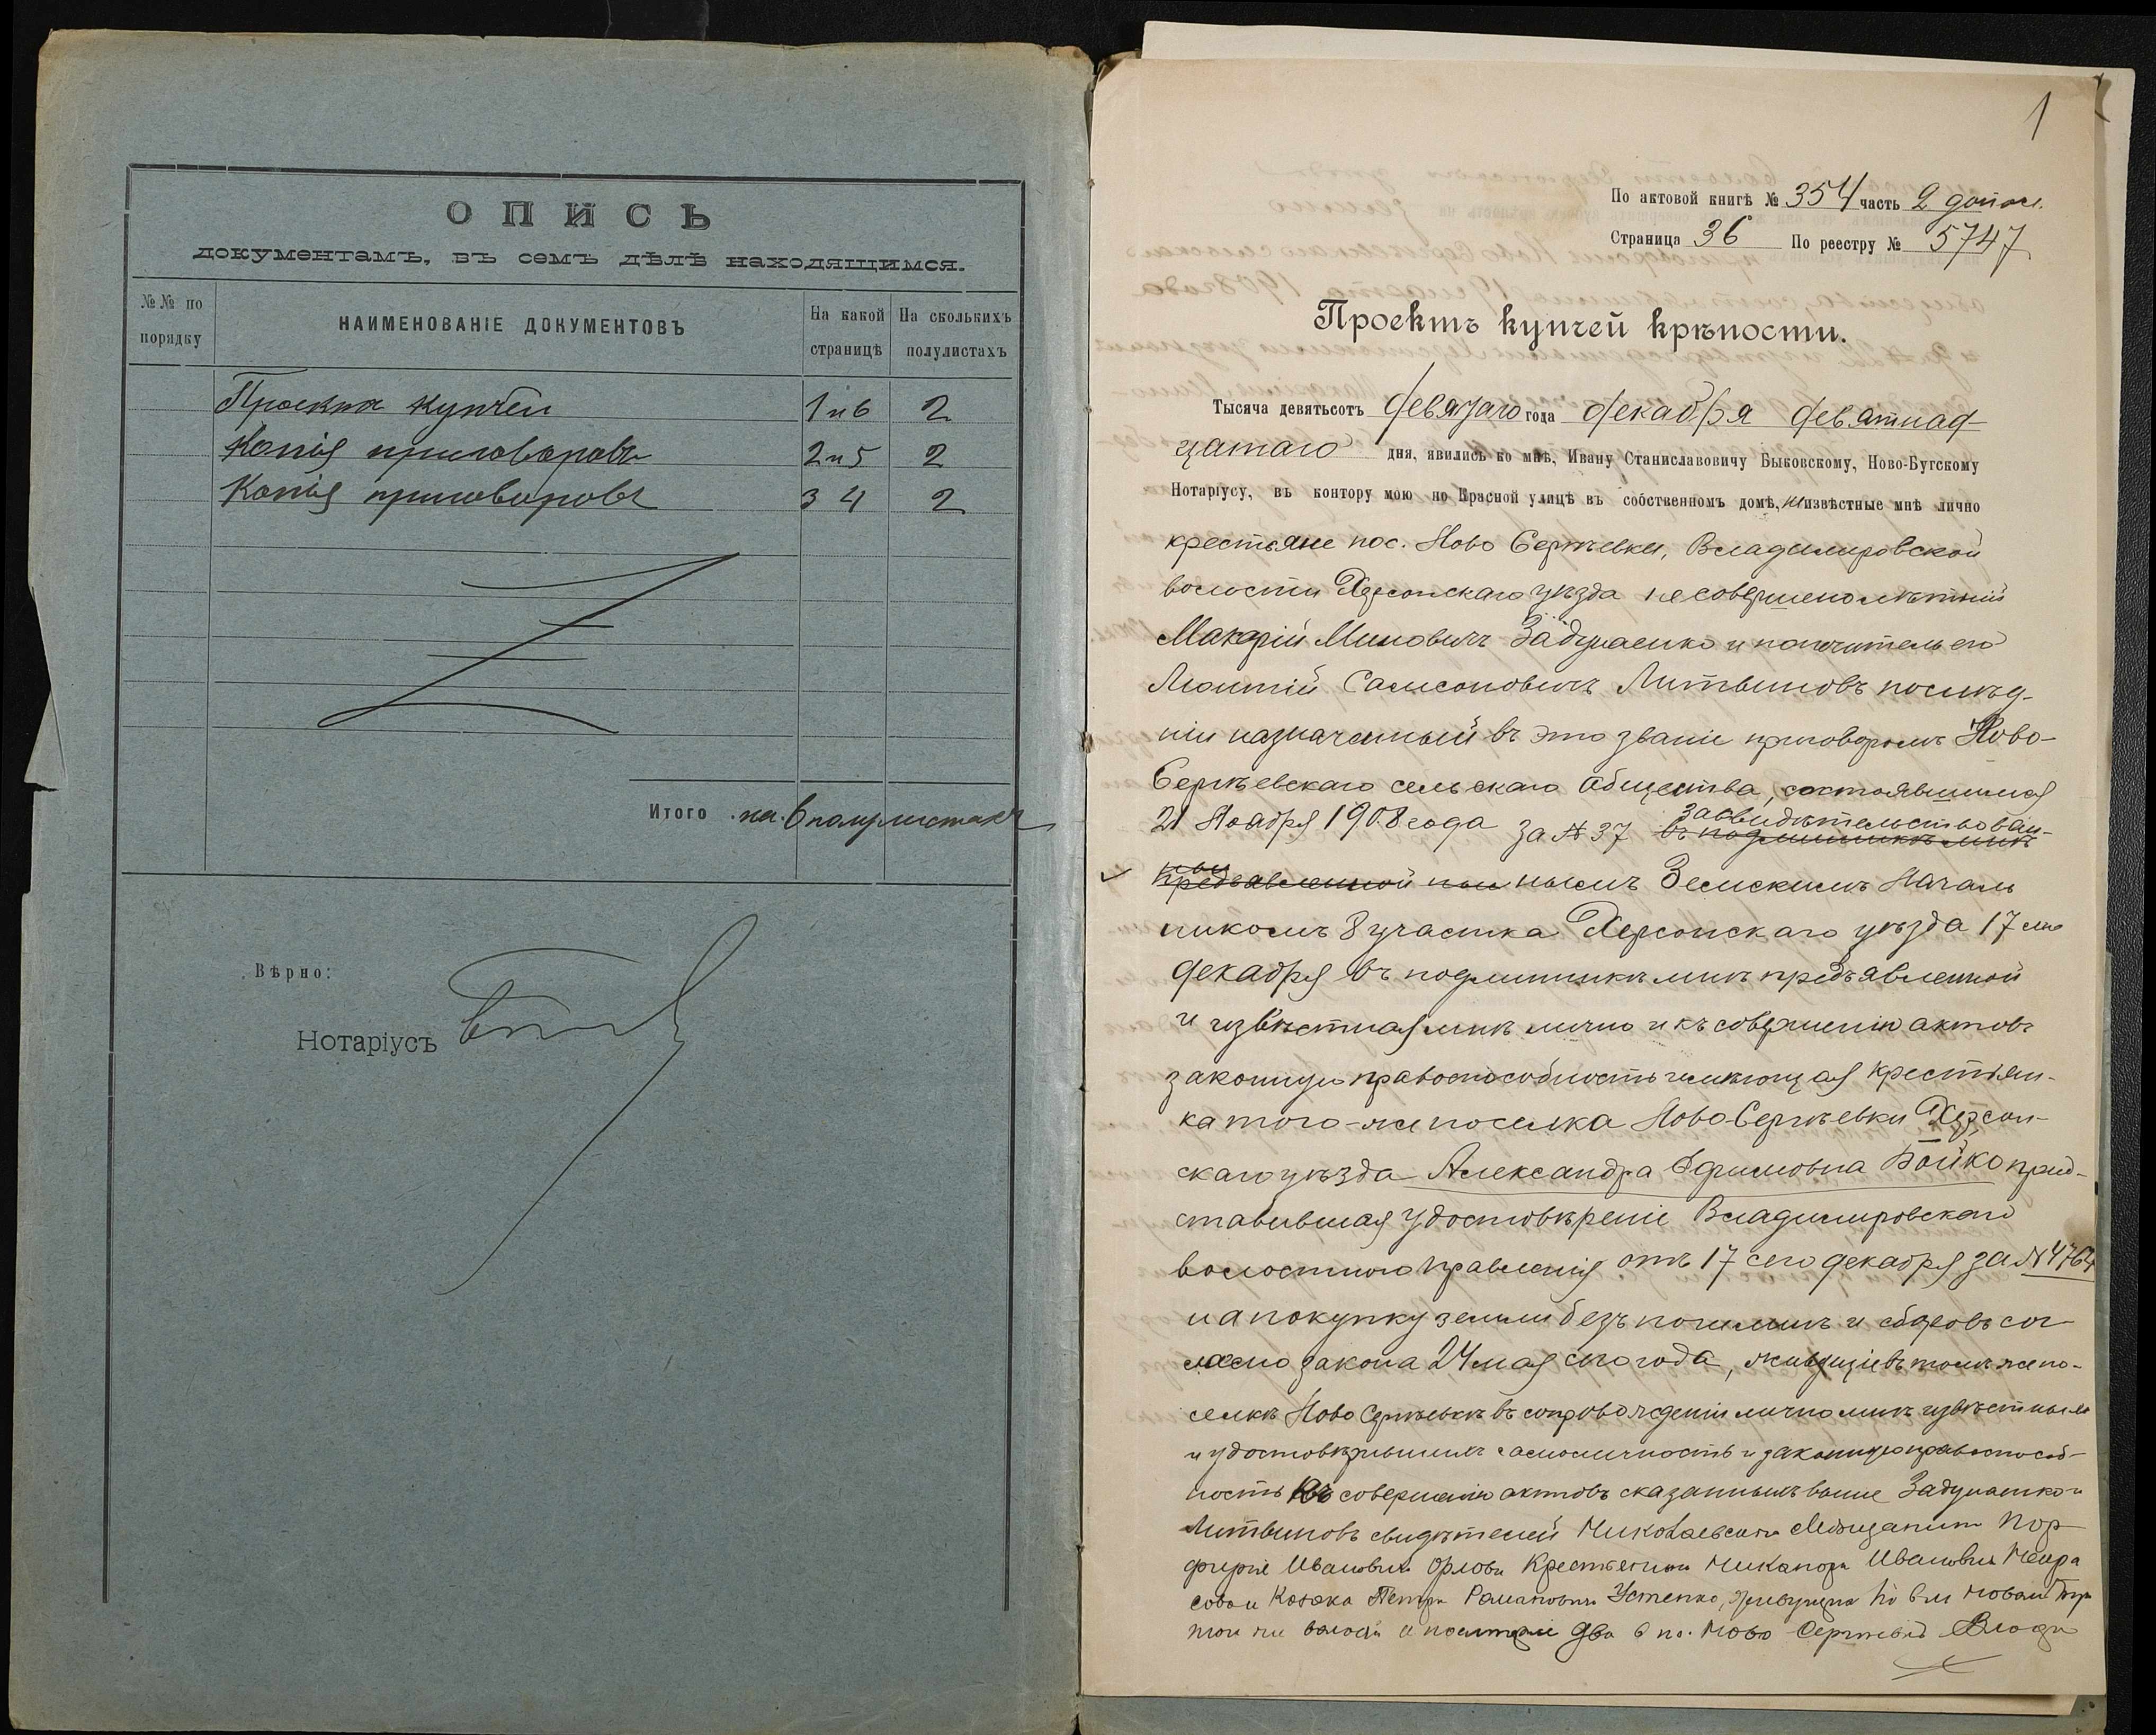 ОПИСЬ
документамъ, въ семъ дѣлѣ находящимся.
№№ по порядку
НАИМЕНОВАНІЕ ДОКУМЕНТОВЪ
На какой страницѣ
На сколькихъ полулистахъ
Проектъ купчей 1 и 6 2
Копія приговоровъ 2 и 5 2
Копія приговоровъ 3 4 2
Итого на 6 полулистахъ
Вѣрно:
Нотаріусъ
1
По актовой книгѣ № 354 часть 2 допол.
Страница 36 По реестру № 5747
Проектъ купчей крѣпости.
Тысяча девятьсотъ девятаго года декабря девятнад-
цатаго дня, явились ко мнѣ, Ивану Станиславовичу Быковскому, Ново-Бугскому
Нотаріусу, въ контору мою по Красной улицѣ въ собственномъ домѣ, неизвѣстные мнѣ лично
крестьяне пос. Ново Сергѣевки, Владимировской
волости Херсонскаго уѣзда несовершенолѣтній
Макарій Миновичъ Задунаенко и попечитель его
Леонтій Самсоновичъ Литвиновъ послѣд-
ній назначенный въ это званіе приговоромъ Ново-
Сергѣевскаго сельскаго Общества, состоявшимся
21 Ноября 1908 года за № 37 въ подлинникѣ мнѣ засвидѣтельствован-
предъявленной нымъ Земскимъ Началь
никомъ 8 участка Херсонскаго уѣзда 17 сего
декабря въ подлинникѣ мнѣ предъявленной
и извѣстная мнѣ лично и къ совершенію актовъ
законную правоспособность имѣющая крестьян-
ка того-же поселка Ново-Сергѣевки Херсон-
скаго уѣзда Александра Ефимовна Бойко пред-
ставившая удостовѣреніе Владимировскаго
волостного правленія отъ 17 сего декабря за № 4764
на покупку земли безъ пошлинъ и сборовъ сог
ласно закона 24 мая сего года, живущіе въ томъ же по-
селкѣ Ново Сергѣевкѣ въ сопровожденіи лично мнѣ извѣстныхъ
и удостовѣрившихъ самоличность и законную правоспособ-
ность къ совершенію актовъ сказанныхъ выше Задунаенко и
Литвиновъ свидѣтелей Николаевскаго Мѣщанина Пор-
фирія Ивановича Орлова Крестьянина Никанора Ивановича
и Козака Петра Романовича Устенко, живущихъ
той же волости и послѣдніе два в по. Ново Сергѣевкѣ Влади